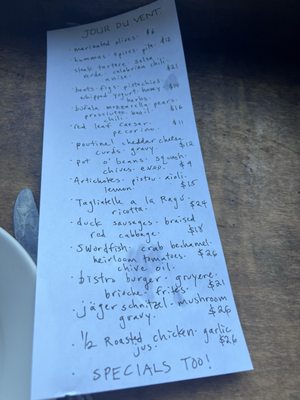 JOUR DU VENT
· marinated olives. $6
· hummus. spices. pita. $12
· steak tartare. salsa
verde. calabrian chili $21
anise.
· beets. figs. pistachios.
whipped yogurt. honey $14
herbs.
· bufala mozzarella. pears.
prosciutto. basil $16
chili
· red leaf caesar. $11
pecorino.
· poutine! cheddar cheese
curds. gravy. $12
· pot o' beans. squash.
chives. evoo. $9
· Artichokes. pistou. aioli.
lemon. $15
· Tagliatelle a la Ragú $24
ricotta.
· duck sausages. braised
red cabbage. $18
· Swordfish. crab bechamel.
heirloom tomatoes. $26
chive oil.
· bistro burger. gruyere.
brioche. frites. $21
· jäger schnitzel. mushroom
gravy. $26
· ½ Roasted chicken. garlic
jus. $26
· SPECIALS TOO!